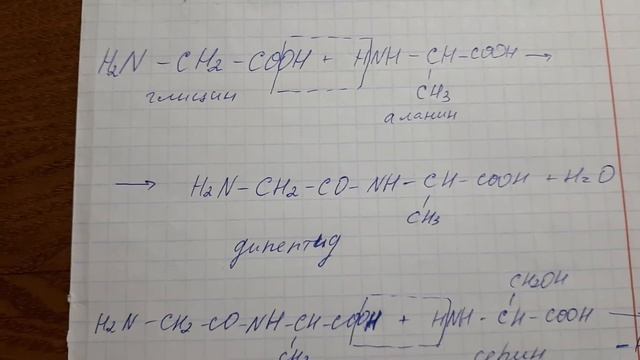 H₂N – CH₂ – COOH + HNH – CH – COOH →
глицин CH₃
аланин
→ H₂N – CH₂ – CO – NH – CH – COOH + H₂O
CH₃
дипептид
CH₂OH
H₂N – CH₂ – CO – NH – CH – COOH + HNH – CH – COOH →
CH₃ серин